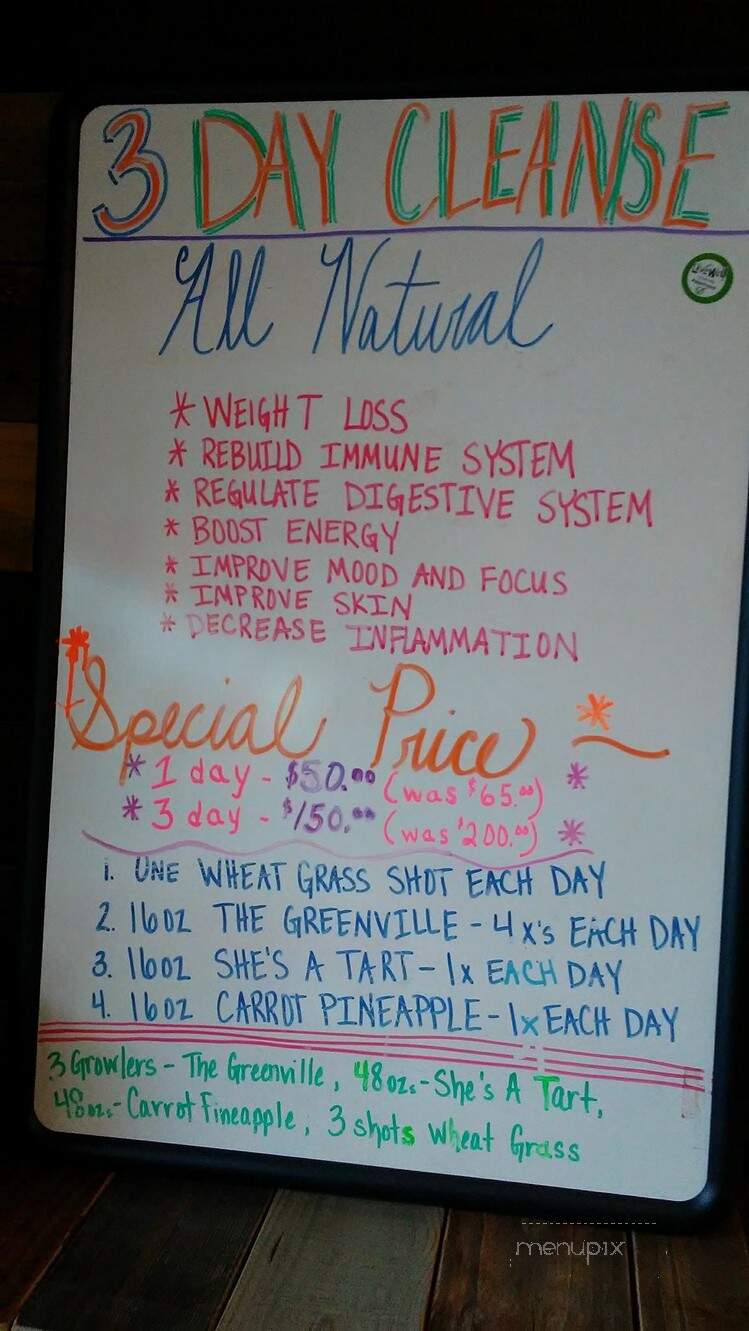 3 DAY CLEANSE
All Natural
* WEIGHT LOSS
* REBUILD IMMUNE SYSTEM
* REGULATE DIGESTIVE SYSTEM
* BOOST ENERGY
* IMPROVE MOOD AND FOCUS
* IMPROVE SKIN
* DECREASE INFLAMMATION
* Special Price *
* 1 day - $50.00 (was $65.00) *
* 3 day - $150.00 (was $200.00) *
1. ONE WHEAT GRASS SHOT EACH DAY
2. 16oz THE GREENVILLE - 4x's EACH DAY
3. 16oz SHE'S A TART - 1x EACH DAY
4. 16oz CARROT PINEAPPLE - 1x EACH DAY
3 Growlers - The Greenville, 48oz. - She's A Tart,
48oz. - Carrot Pineapple, 3 shots Wheat Grass
menupix